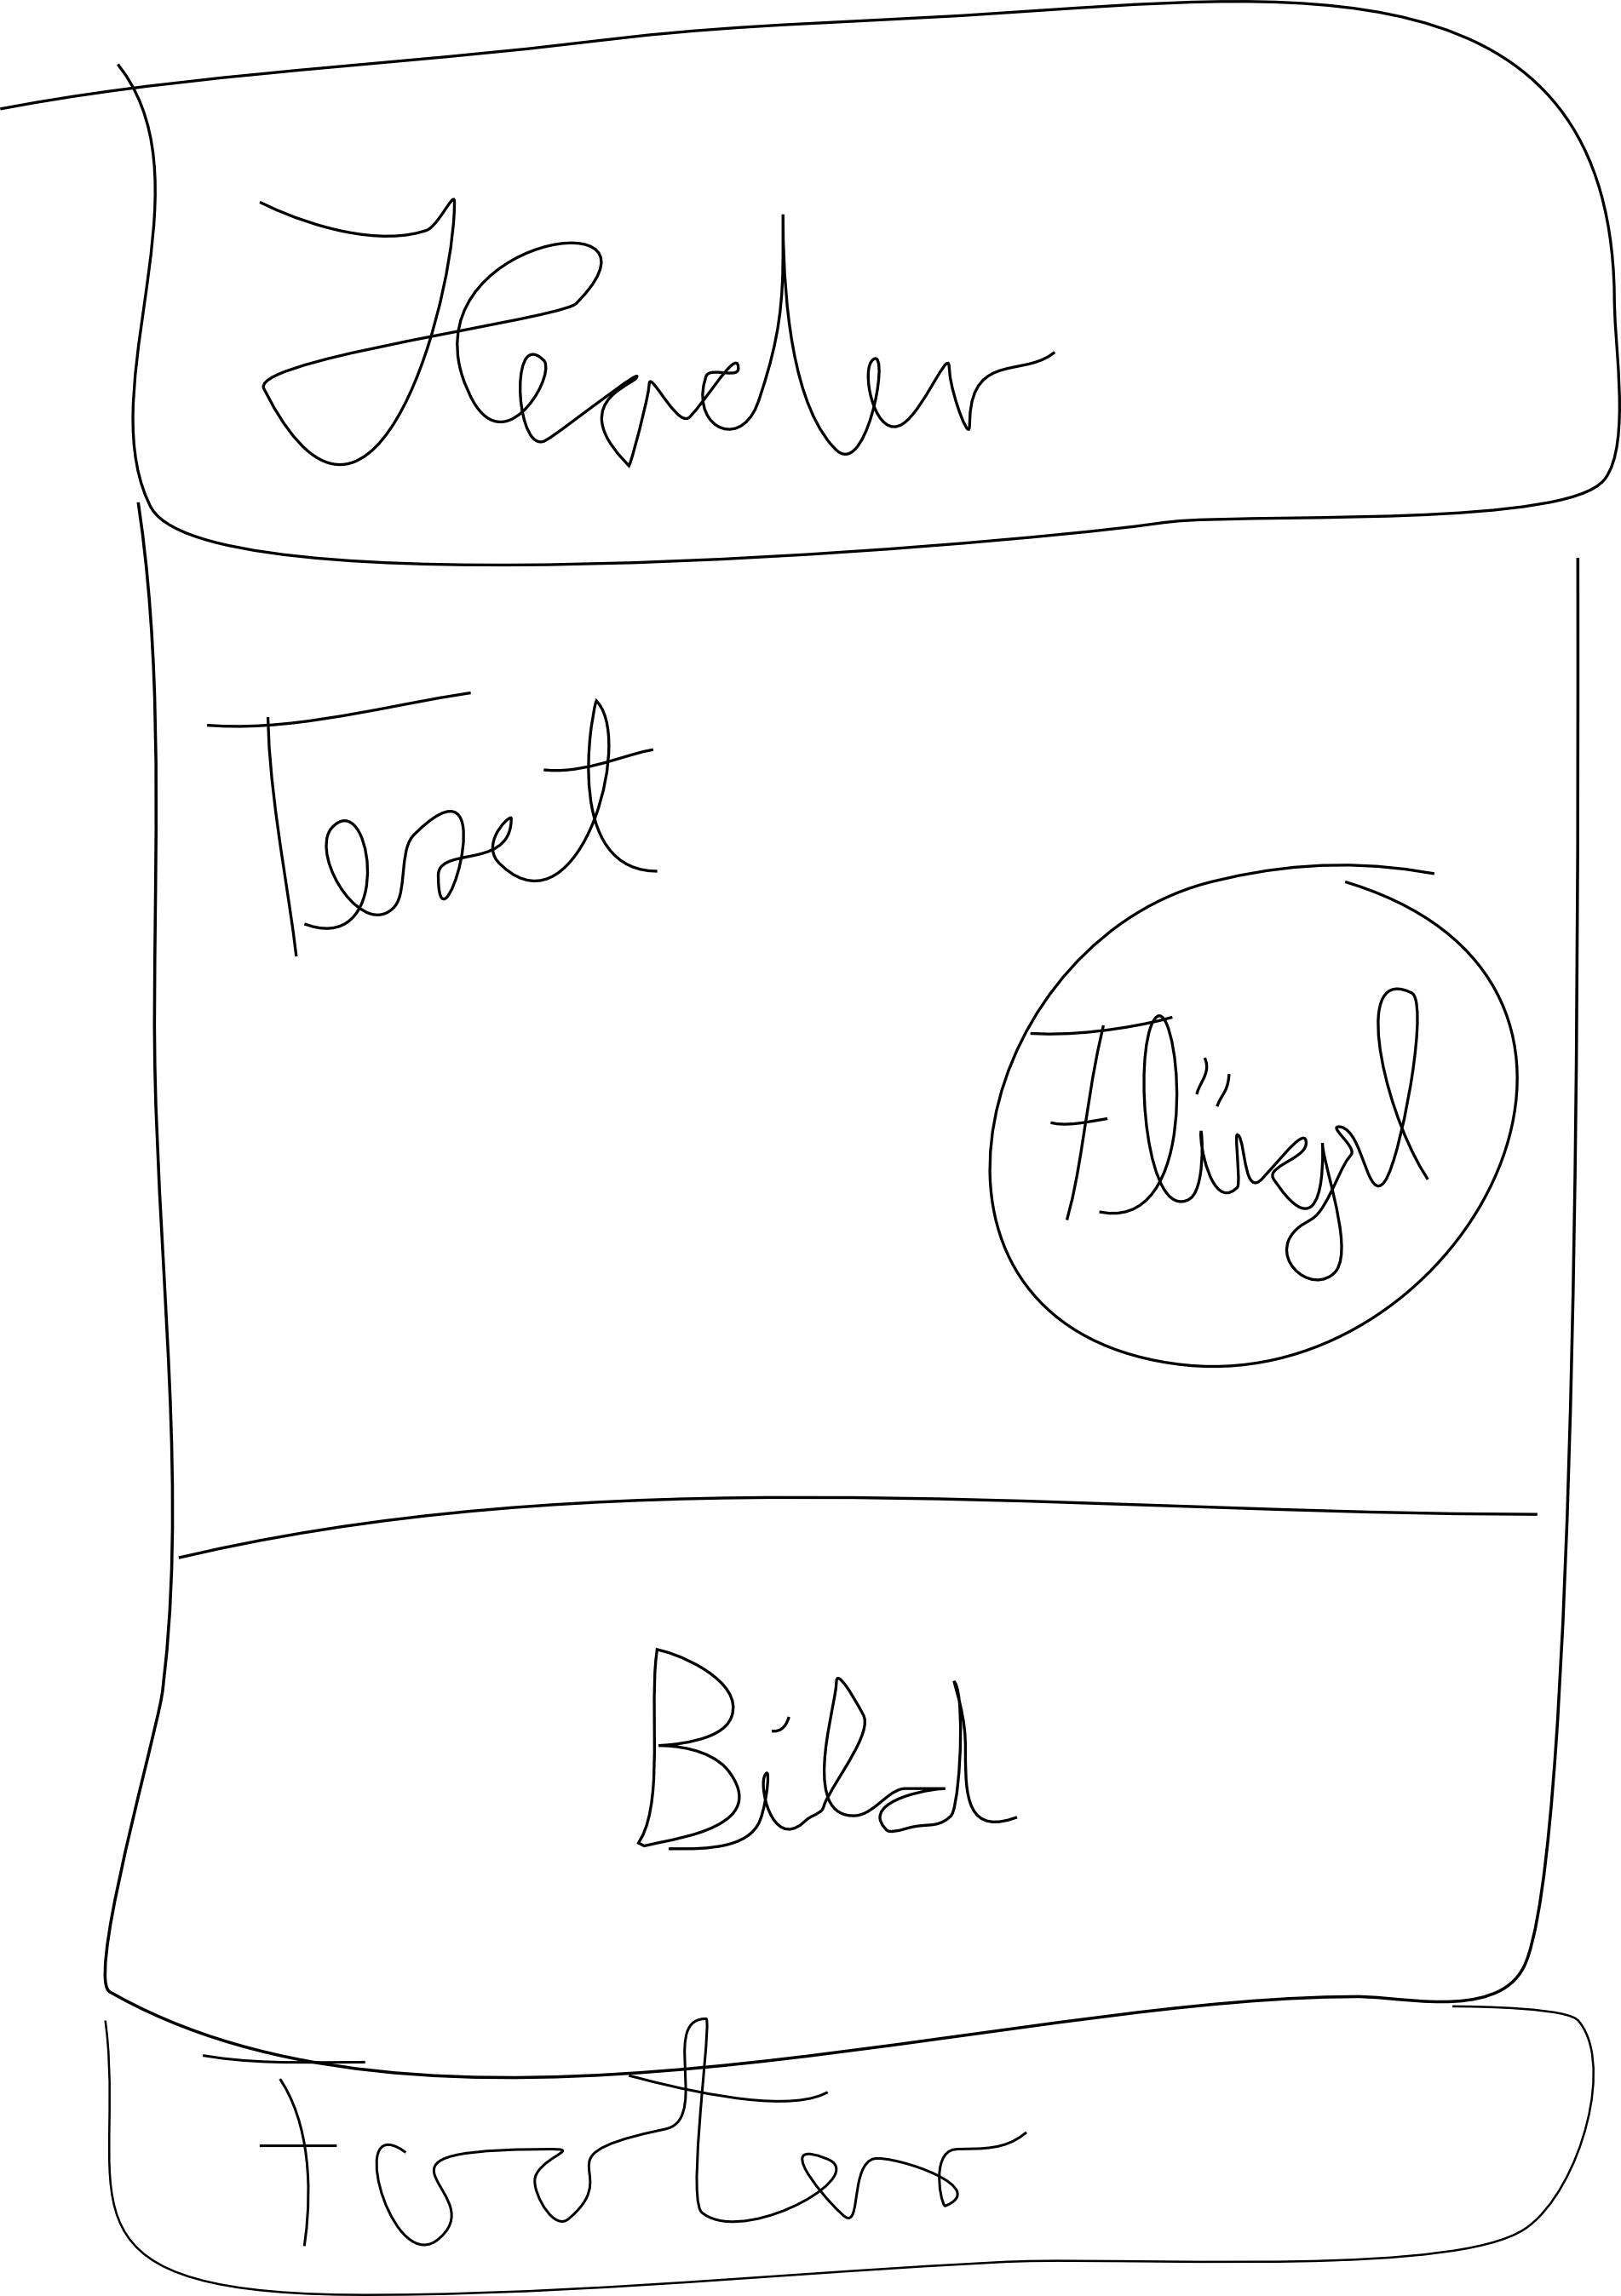 Header
Text
Flügel
Bild
Footer